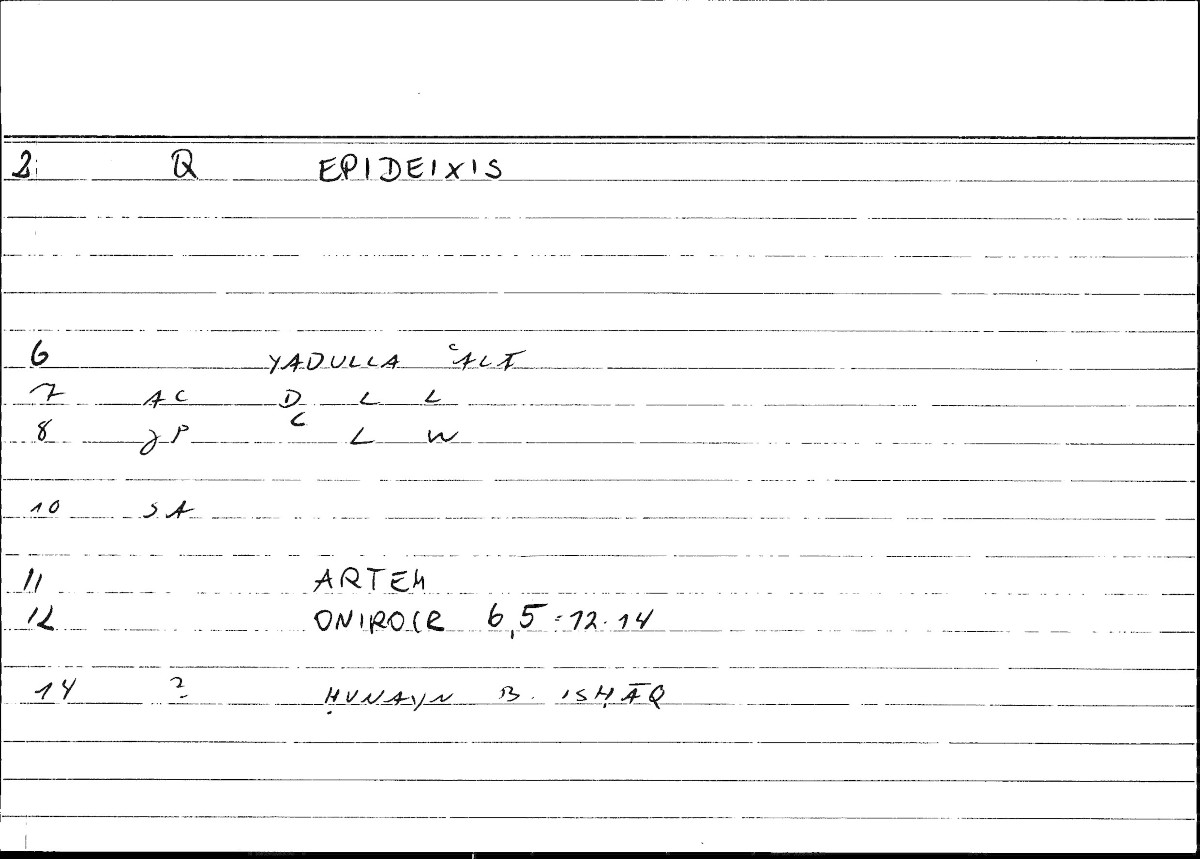 2 Q EPIDEIXIS
6 YADULLA ʿALĪ
7 AC D L L
8 JP C L W
10 SA
11 ARTEM
12 ONIROCR 6,5-12.14
14 ? ḤUNAYN B. ISḤĀQ